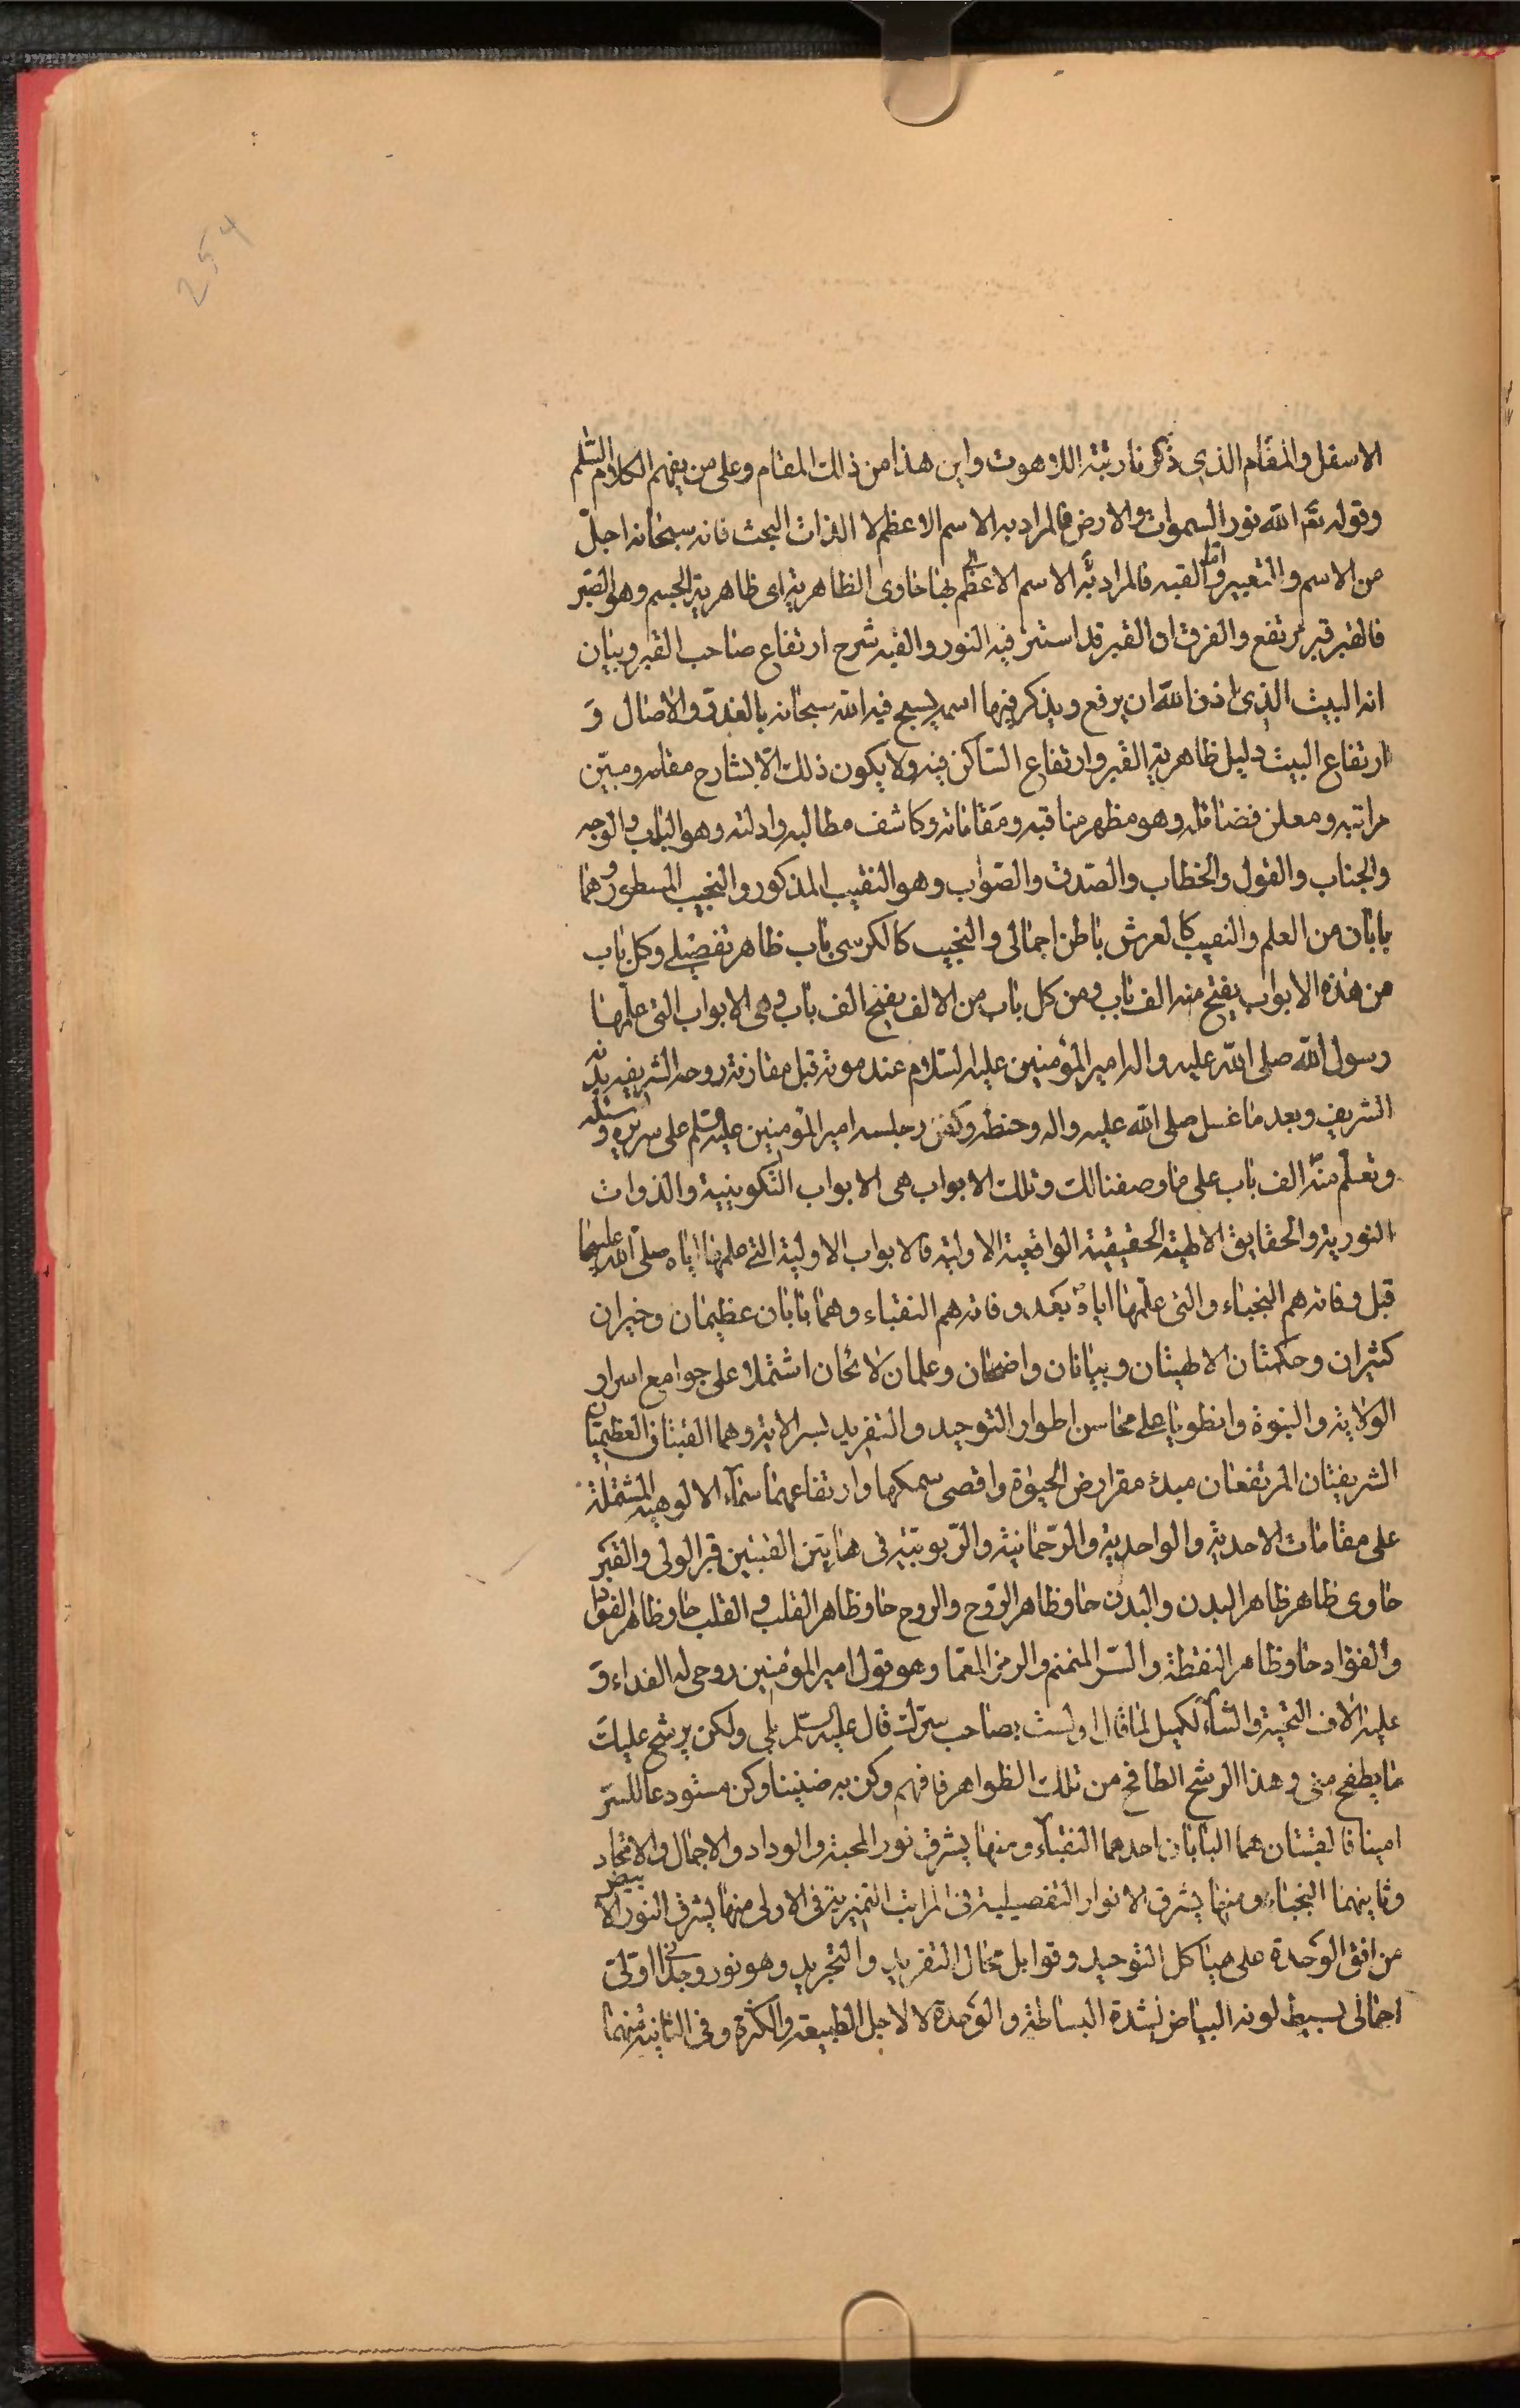 254
الاسفل والمقام الذي ذكرنا رتبة اللاهوت واين هذا من ذلك المقام وعلى من يفهم الكلام السلام
وقوله تع الله نور السموات والارض فالمراد به الاسم الاعظم لا الذات البحت فانه سبحانه اجلّ
من الاسم والتعبير واما القبه فالمراد به الاسم الاعظم بها حاوى الظاهرية اى ظاهرية الجسم وهو القبر
فالقبر قبر مرتفع والفرق ان القبر قد استتر فيه النور والقبه شرح ارتفاع صاحب القبر وبيان
انه البيت الذى اذن الله ان يرفع ويذكر فيها اسمه يسبح فيه الله سبحانه بالغدو والاصال و
ارتفاع البيت دليل ظاهرية القبر وارتفاع الساكن فيه ولا يكون ذلك الا بشارح مقامه ومبيّن
مراتبه ومعلن فضائله وهو مظهر مناقبه ومقاماته وكاشف مطالبه وادلته وهو الباب والوجه
والجناب والقول والخطاب والصدق والصواب وهو النقيب المذكور والنجيب المسطور وهما
بابان من العلم والنقيب كالعرش باطن اجمالى والنجيب كالكرسى باب ظاهر تفصيلى وكل باب
من هذه الابواب يفتح منه الف باب ومن كل باب من الالف يفتح الف باب وهى الابواب التى علّمها
رسول الله صلى الله عليه واله امير المؤمنين عليه السلام عند موته قبل مفارقة روحه الشريفه بدنه
الشريف وبعد ما غسل صلى الله عليه واله وحنطه وكفن وجلسه امير المؤمنين عليه السلام على سريره وسئله
وتعلّم منه الف باب على ما وصفنا لك وتلك الابواب هى الابواب التكوينية والذوات
النورية والحقايق الالهية الحقيقية الواقعية الاولية فالابواب الاولية التى علمها اياه صلى الله عليهما
قبل وفاته هم النجباء والتى علّمها اياه بعد وفاته هم النقباء وهما بابان عظيمان وخيران
كثيران وحكمتان الالهيتان وبيانان واضحان وعلمان لائحان اشتملا على جوامع اسرار
الولاية والنبوة وانطويا على محاسن اطوار التوحيد والتفريد لسر الاية وهما القبتان العظيمتان
الشريفتان المرتفعتان مبدء مقرارض الحيوة واقصى سمكها وارتفاعهما سماء الالوهية المشتملة
على مقامات الاحدية والواحدية والرّحمانية والرّبوبية فى هاتين القبتين قبر الولى والقبر
حاوى ظاهر ظاهر البدن والبدن حاو ظاهر الرّوح والروح حاو ظاهر القلب والقلب حاو ظاهر الفؤاد
والفؤاد حاو ظاهر النقطة والسّر المنمنم والرمز المعمّا وهو قول امير المؤمنين روحى له الفداء و
عليه الاف التحية والثناء لكميل لما قال اولست بصاحب سرّك قال عليه السلم بلى ولكن يرشح عليك
ما يطفح منى وهذا الرشح الطافح من تلك الظواهر فافهم وكن به ضنينا وكن مستودعا للسّر
امينا فالقبتان هما البابان احدهما النقباء ومنها يشرق نور المحبة والوداد والاجمال والاتحاد
وثانيهما النجباء ومنها يشرق الانوار التفصيلية فى المراتب التميزية فى الاولى منها يشرق النور الابيض
من افق الوحدة على هياكل التوحيد وقوابل محال التفريد والتجريد وهو نور وجدانى اوّلى
اجمالى بسيط لونه البياض لشدة البساطة والوحدة لا لاجل الطبيعة والكثرة وفى الثانية منهما